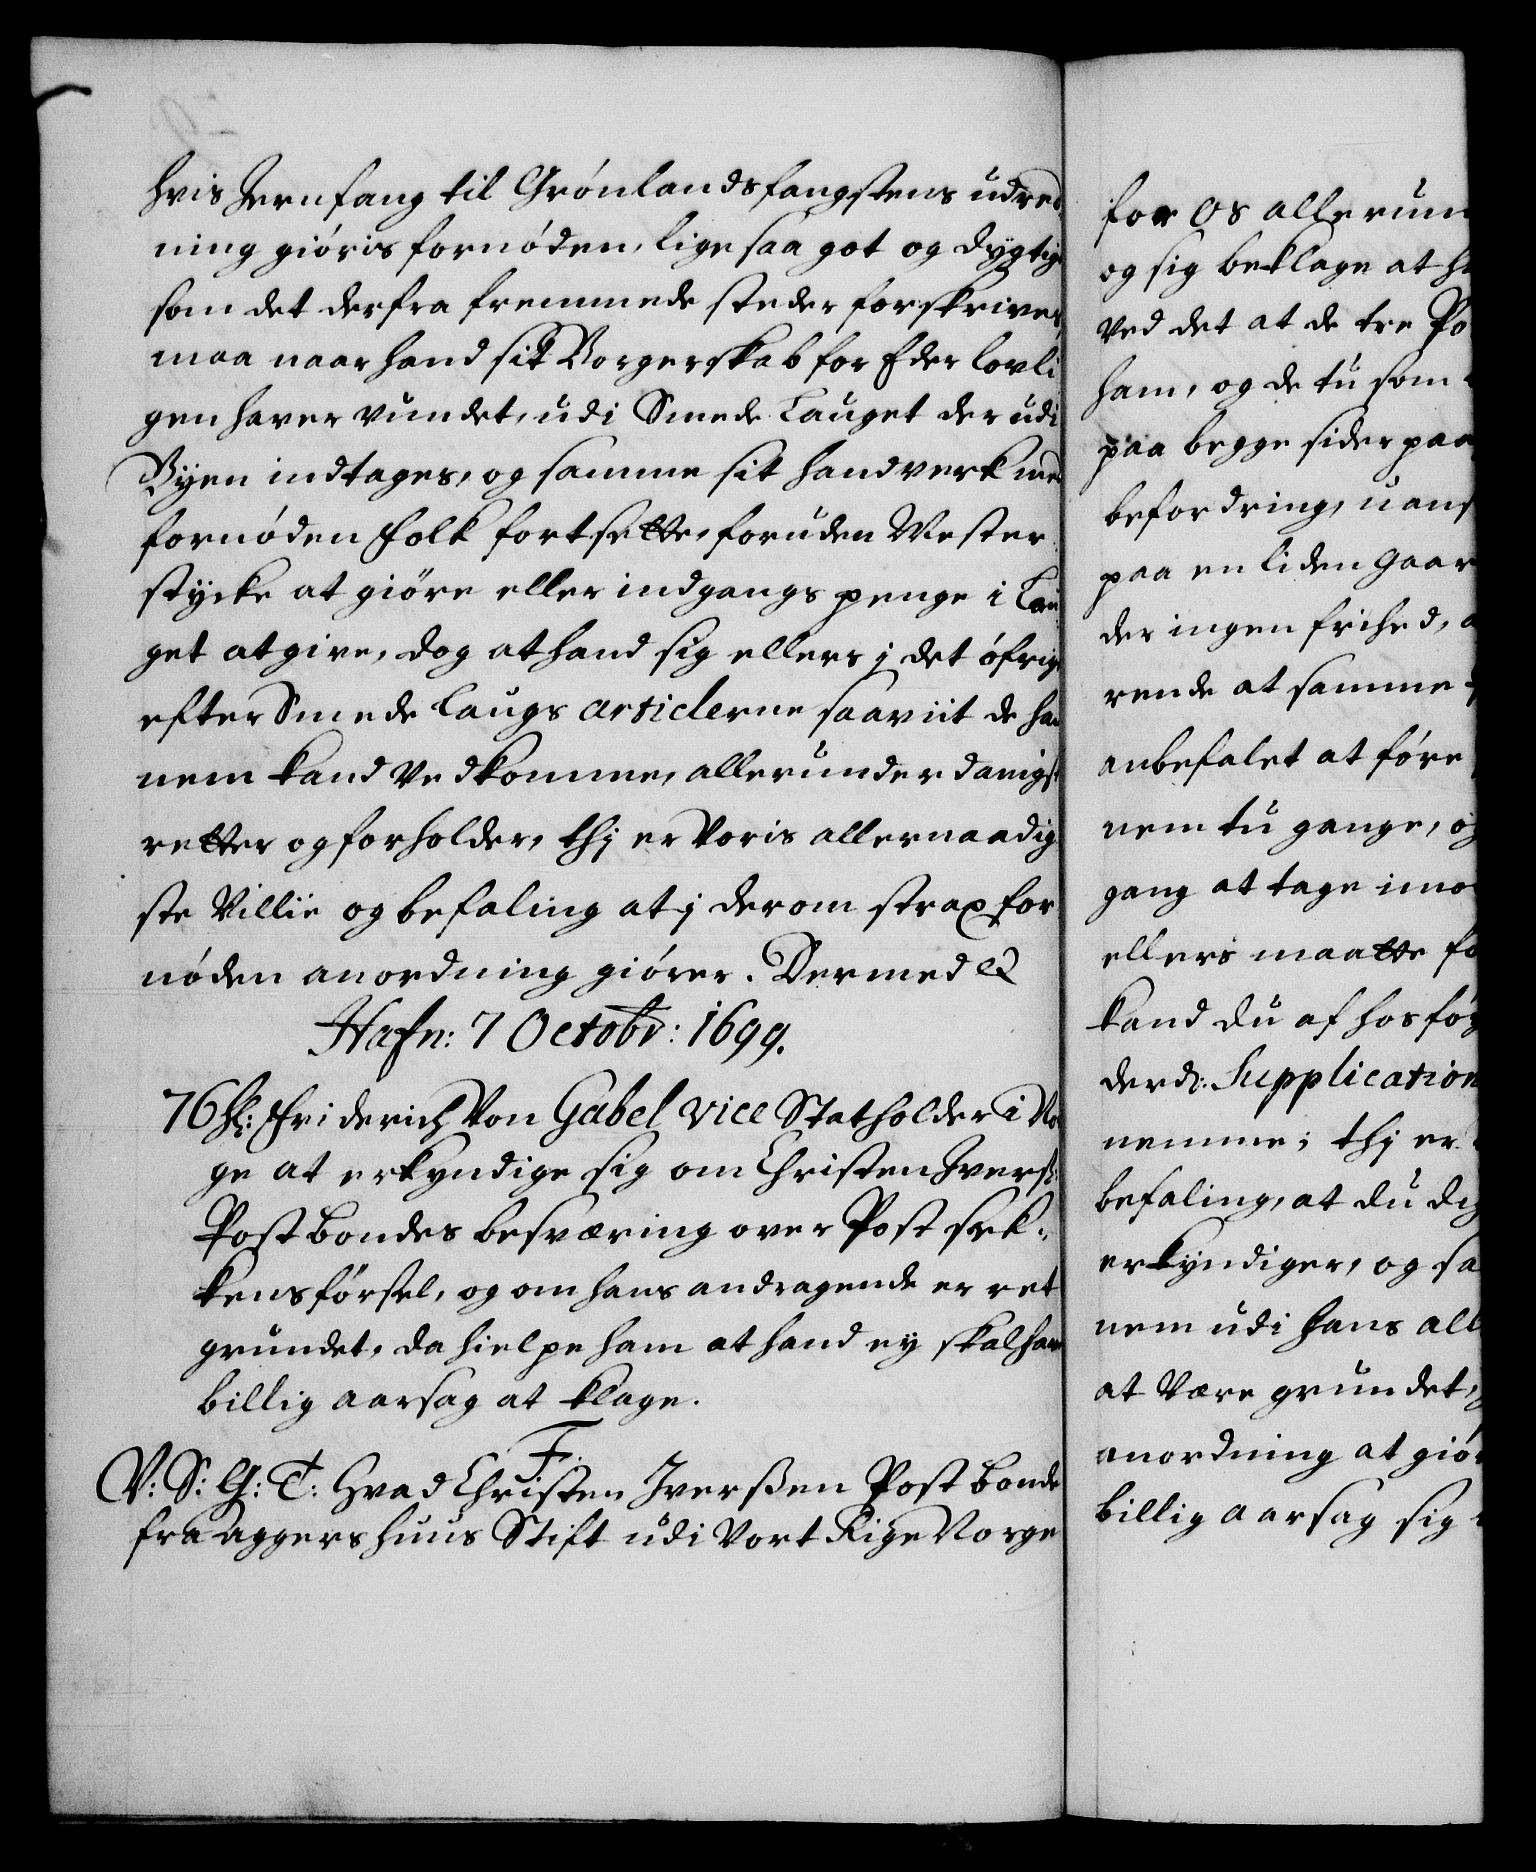 hvis Jernfang til Grønlandsfangstens udred
ning giøris fornøden, lige saa got og dygtig
som det derfra fremmede steder forskrives,
maa naar hand sit Borgerskab for Eder lovli
gen haver vundet, udi Smede Lauget der udi
Byen indtages, og samme sit handverk med
fornøden folk fortsette, foruden Mester
stycke at giøre eller indgangs penge i Lau
get at give, dog at hand sig ellers j det øfrige
efter Smede Laugs articlerne saaviit de han
nem kand vedkomme, allerunderdanigst
retter og forholder, thj er Voris allernaadig
ste Villie og befaling at j derom strax for
nøden anordning giører. Dermed &
Hafn: 7 Octobr: 1699.
76 H: Friderich Von Gabel Vice Statholder i Nor
ge at erkyndige sig om Christen Iverss:
Postbondes besværing over Post sek-
kens førsel, og om hans andragende er ret
grundet, da hielpe ham at hand ey skal have
billig aarsag at klage.
F.
V: S: G: T: Hvad Christen Iverßen Postbonde
fra aggershuus Stift udi Vort Rige Norge
for os allerun
og sig beklage at h
ved det at de tre Po
ham, og de tu som
paa begge sider paa
befordring, uans
paa en liden gaar
der ingen frihed, a
rende at samme
anbefalet at føre
nem tu gange, og
gang at tage imo
ellers maatte fo
kand du af hosføy
derd: Supplication
nemme; thj er
befaling, at du dig
erkyndiger, og sa
nem udi hans all
at være grundet,
anordning at giør
billig aarsag sig